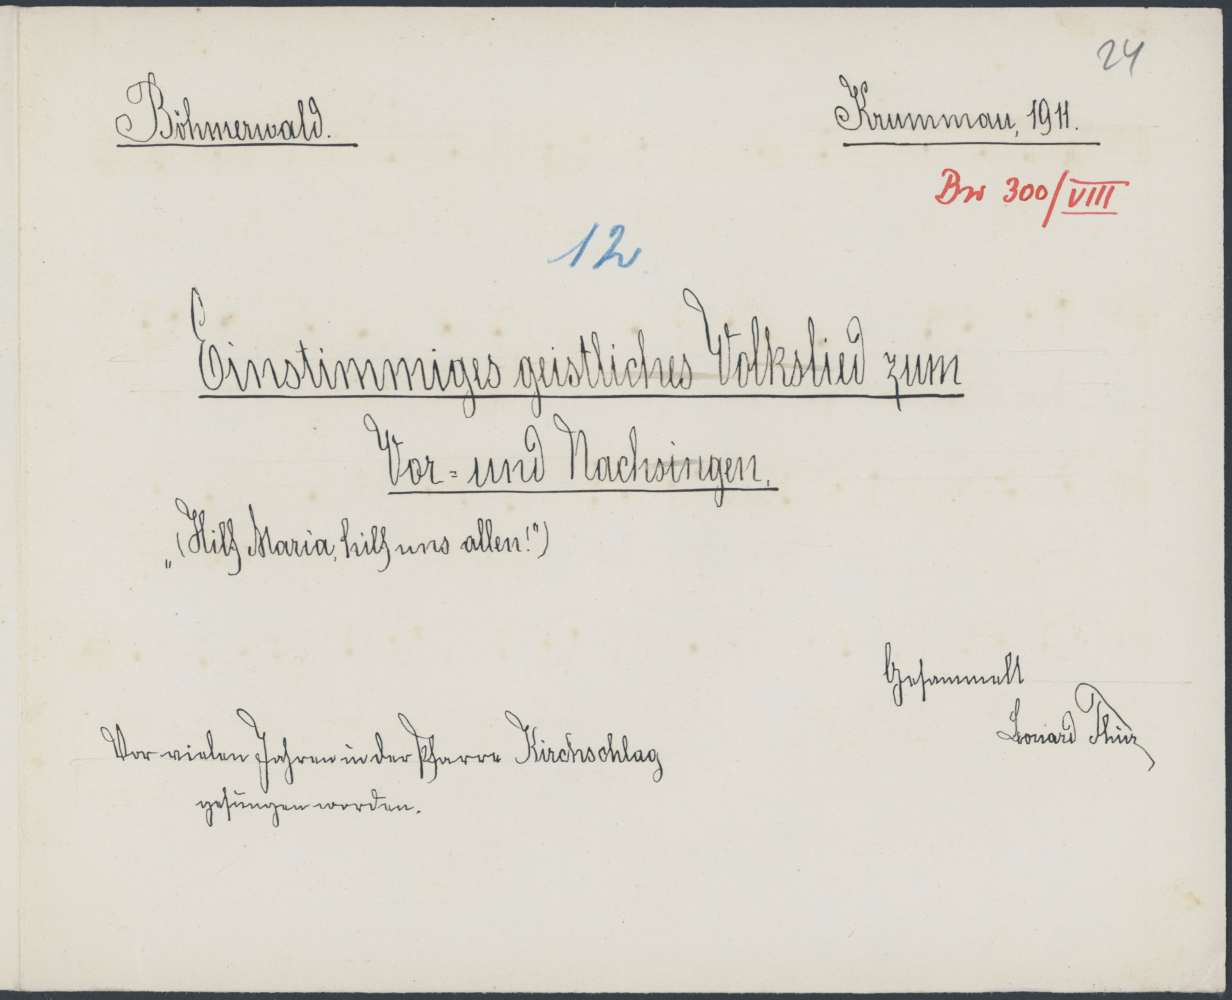 24
Böhmerwald.
Krummau, 1911.
Bw 300/VIII
12
Einstimmiges geistliches Volkslied zum
Vor- und Nachsingen.
„(Hilf Maria, hilf uns allen!“)
Gesammelt
Vor vielen Jahren in der Pfarre Kirchschlag
gesungen worden.